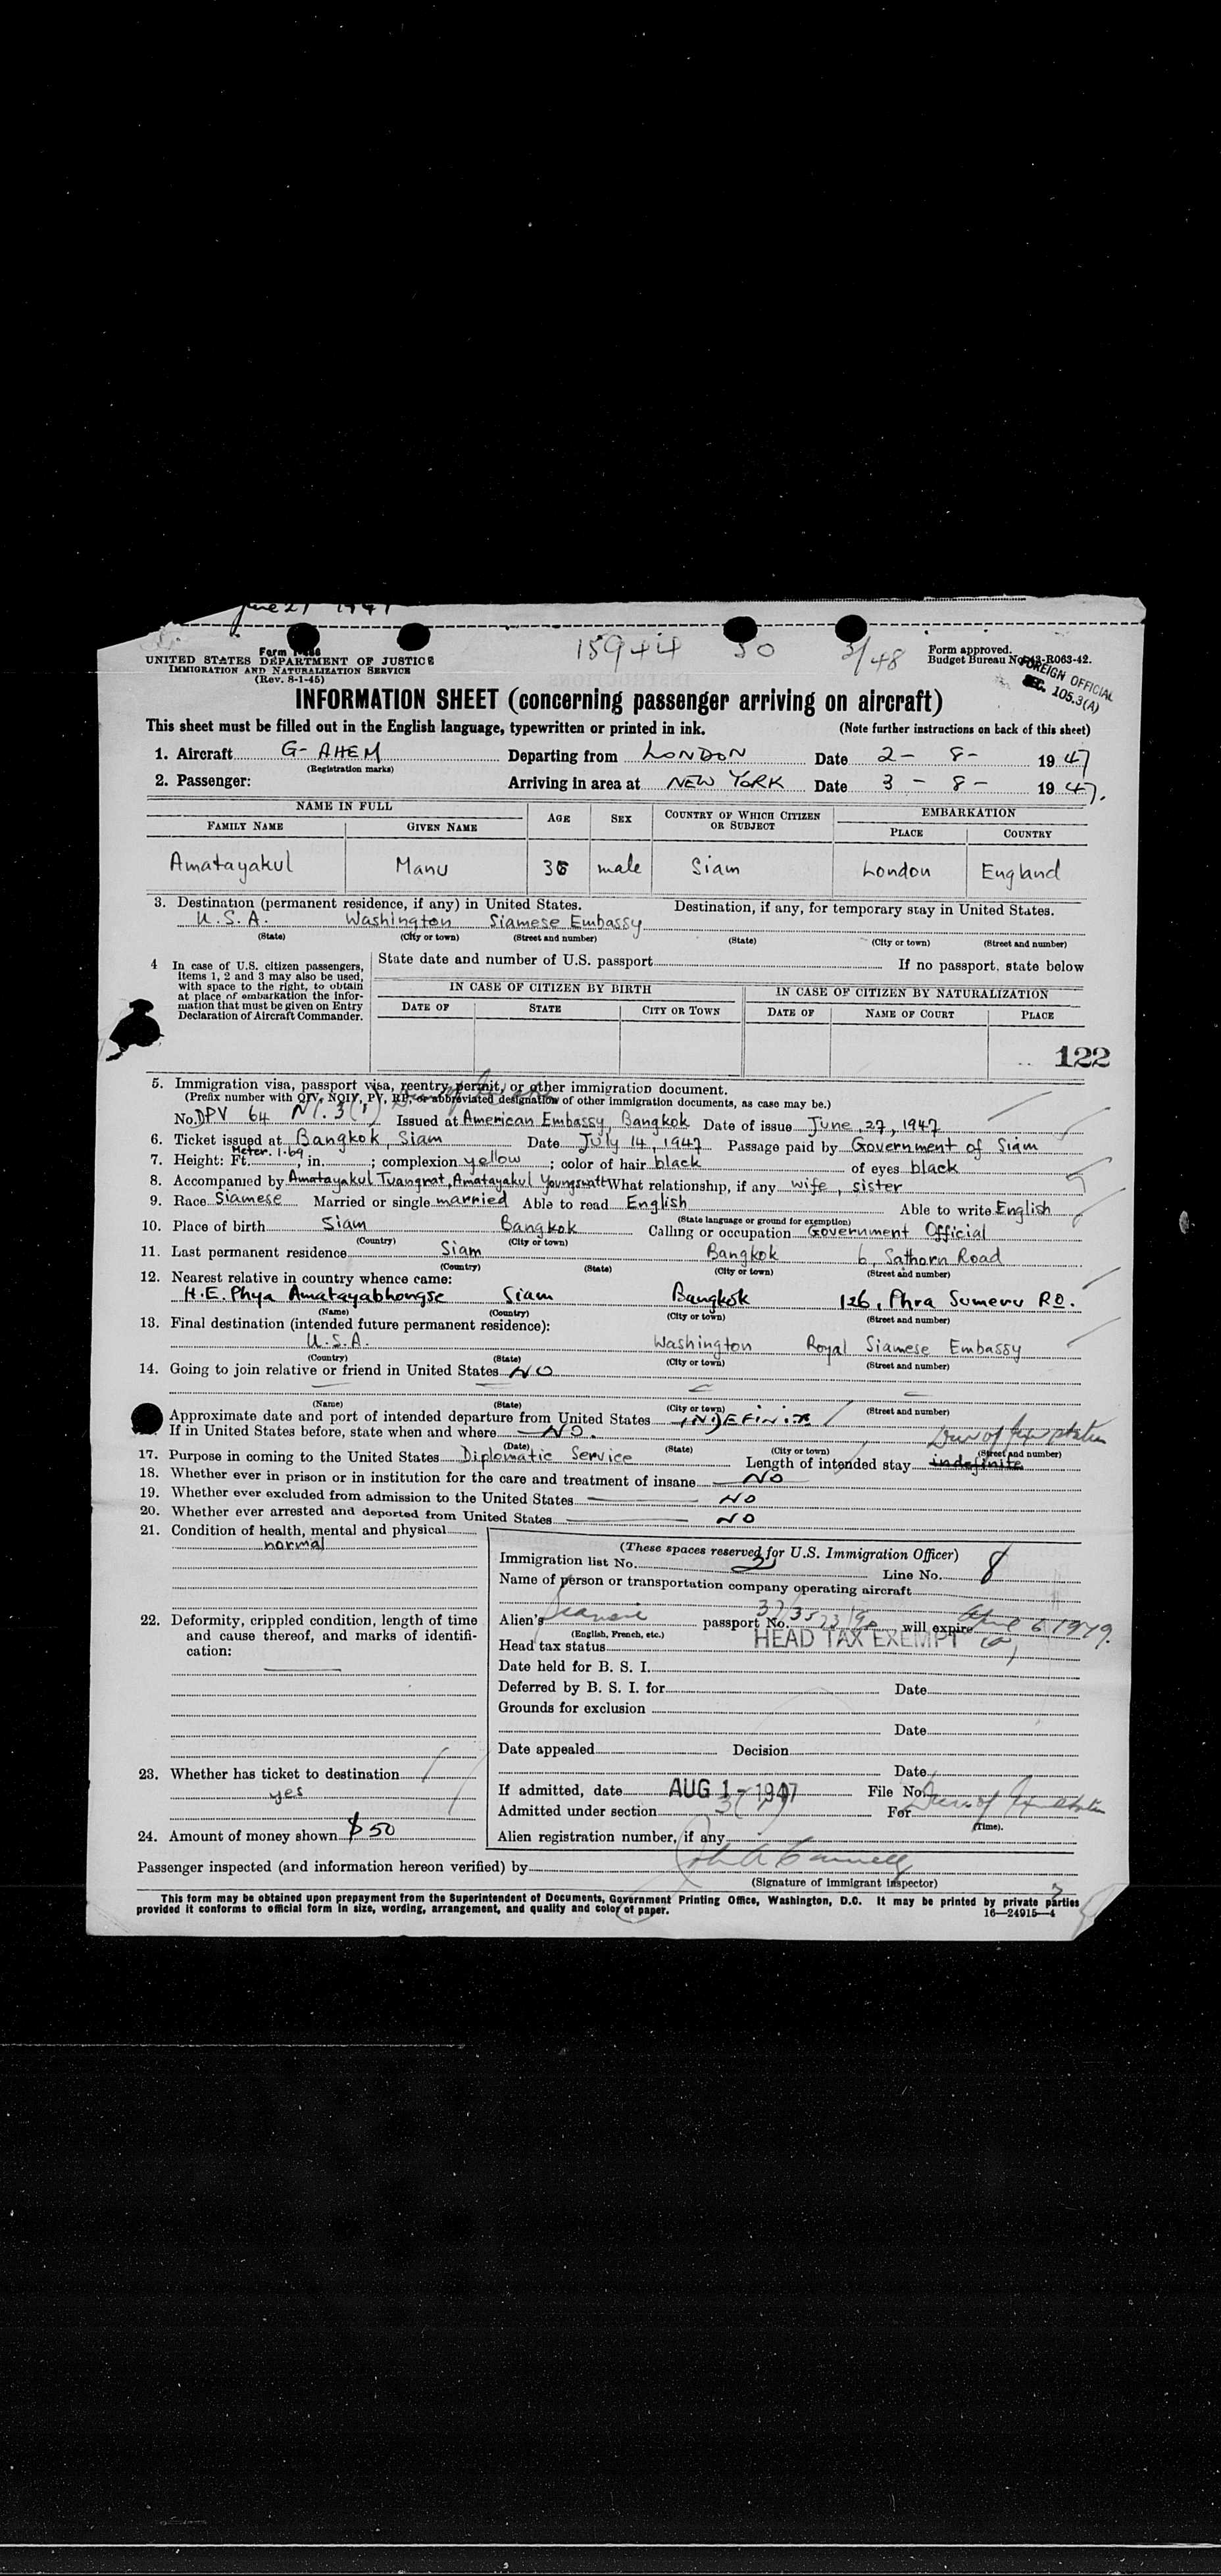 June 27 1947
15944 50 3/48
Form I-466
UNITED STATES DEPARTMENT OF JUSTICE
IMMIGRATION AND NATURALIZATION SERVICE
(Rev. 8-1-45)
Form approved.
Budget Bureau No. 43-R063-42.
FOREIGN OFFICIAL
SEC. 105.3(A)
INFORMATION SHEET (concerning passenger arriving on aircraft)
This sheet must be filled out in the English language, typewritten or printed in ink. (Note further instructions on back of this sheet)
1. Aircraft G-AHEM Departing from LONDON Date 2 - 8 - 1947
(Registration marks)
2. Passenger: Arriving in area at NEW YORK Date 3 - 8 - 1947.
NAME IN FULL AGE SEX COUNTRY OF WHICH CITIZEN OR SUBJECT EMBARKATION
FAMILY NAME GIVEN NAME PLACE COUNTRY
Amatayakul Manu 36 male Siam London England
3. Destination (permanent residence, if any) in United States. Destination, if any, for temporary stay in United States.
U.S.A. Washington Siamese Embassy
(State) (City or town) (Street and number) (State) (City or town) (Street and number)
4 In case of U.S. citizen passengers, items 1, 2 and 3 may also be used, with space to the right, to obtain at place of embarkation the information that must be given on Entry Declaration of Aircraft Commander.
State date and number of U.S. passport If no passport, state below
IN CASE OF CITIZEN BY BIRTH IN CASE OF CITIZEN BY NATURALIZATION
DATE OF STATE CITY OR TOWN DATE OF NAME OF COURT PLACE
122
5. Immigration visa, passport visa, reentry permit, or other immigration document.
(Prefix number with QIV, NQIV, PV, RP, or abbreviated designation of other immigration documents, as case may be.)
No. DPV 64 3(1) Issued at American Embassy, Bangkok Date of issue June 27, 1947
6. Ticket issued at Bangkok, Siam Date July 14, 1947 Passage paid by Government of Siam
7. Height: Ft. Meter. 1.69, in. ; complexion yellow ; color of hair black of eyes black
8. Accompanied by Amatayakul Tuangrat, Amatayakul Youngswatt What relationship, if any wife, sister
9. Race Siamese Married or single married Able to read English Able to write English
(State language or ground for exemption)
10. Place of birth Siam Bangkok Calling or occupation Government Official
(Country) (City or town)
11. Last permanent residence Siam Bangkok 6, Sathorn Road
(Country) (State) (City or town) (Street and number)
12. Nearest relative in country whence came:
H.E. Phya Amatayabhongse Siam Bangkok 126, Phra Sumeru RD.
(Name) (Country) (City or town) (Street and number)
13. Final destination (intended future permanent residence):
U.S.A. Washington Royal Siamese Embassy
(Country) (State) (City or town) (Street and number)
14. Going to join relative or friend in United States NO
(Name) (State) (City or town) (Street and number)
Approximate date and port of intended departure from United States INDEFINITE
If in United States before, state when and where NO.
(Date) (State) (City or town) (Street and number)
17. Purpose in coming to the United States Diplomatic Service Length of intended stay indefinite
18. Whether ever in prison or in institution for the care and treatment of insane NO
19. Whether ever excluded from admission to the United States NO
20. Whether ever arrested and deported from United States NO
21. Condition of health, mental and physical
normal
22. Deformity, crippled condition, length of time and cause thereof, and marks of identification:
23. Whether has ticket to destination
yes
24. Amount of money shown $50
(These spaces reserved for U.S. Immigration Officer)
Immigration list No. 2 Line No. 8
Name of person or transportation company operating aircraft
Alien's Siamese passport No. will expire April 6 1949.
(English, French, etc.)
Head tax status HEAD TAX EXEMPT
Date held for B. S. I.
Deferred by B. S. I. for Date
Grounds for exclusion
Date
Date appealed Decision
Date
If admitted, date AUG 1 - 1947 File No.
Admitted under section 3(1) For
(Time).
Alien registration number, if any
Passenger inspected (and information hereon verified) by
(Signature of immigrant inspector)
This form may be obtained upon prepayment from the Superintendent of Documents, Government Printing Office, Washington, D.C. It may be printed by private parties
provided it conforms to official form in size, wording, arrangement, and quality and color of paper. 16—24915-4